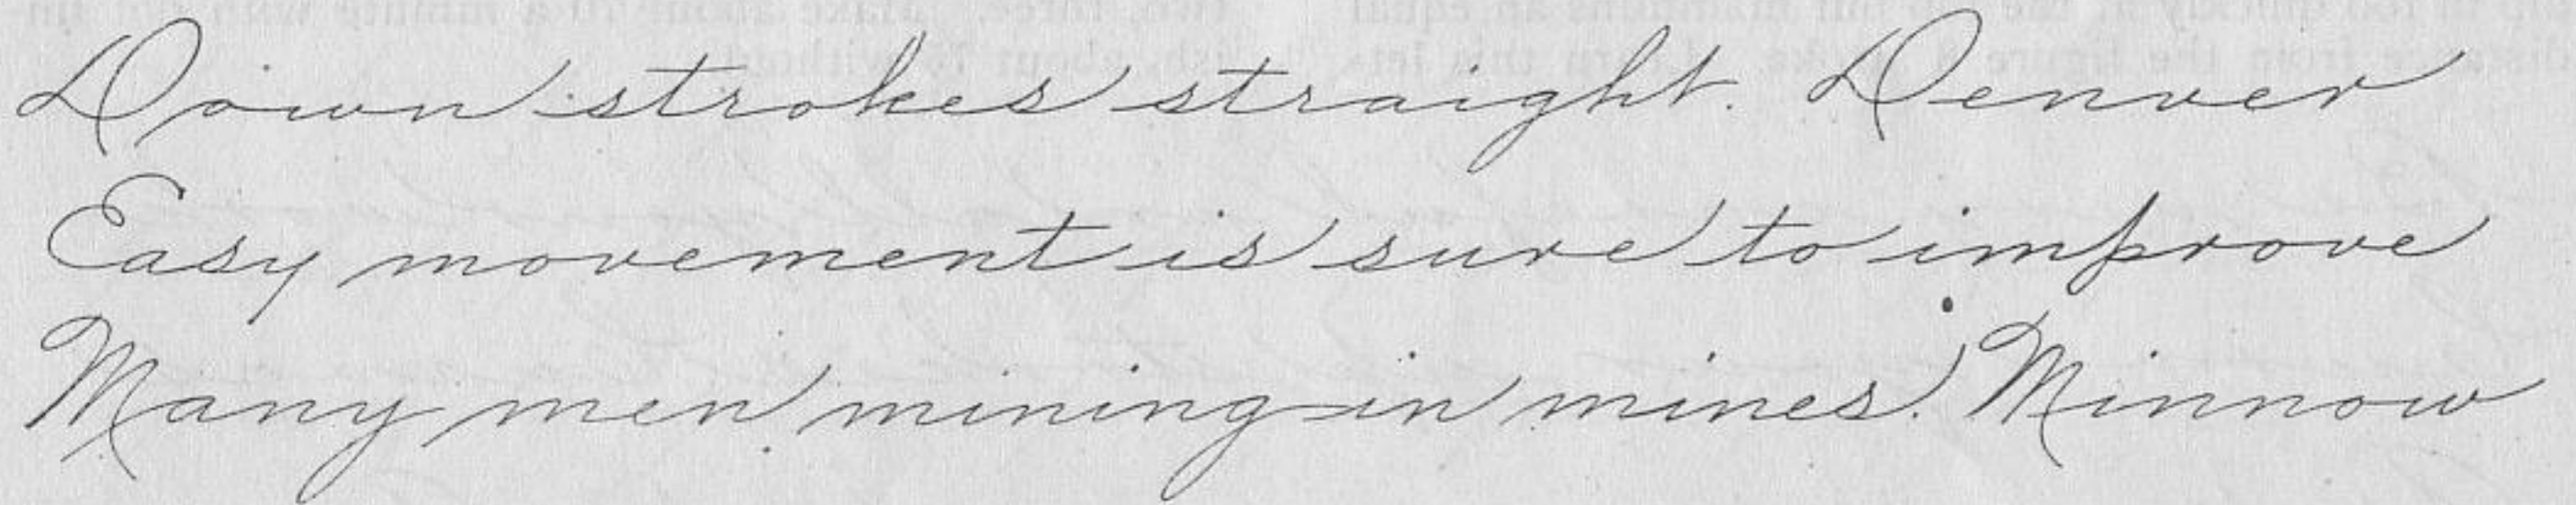 Down strokes straight. Denver
Easy movement is sure to improve
Many men mining in mines. Minnow